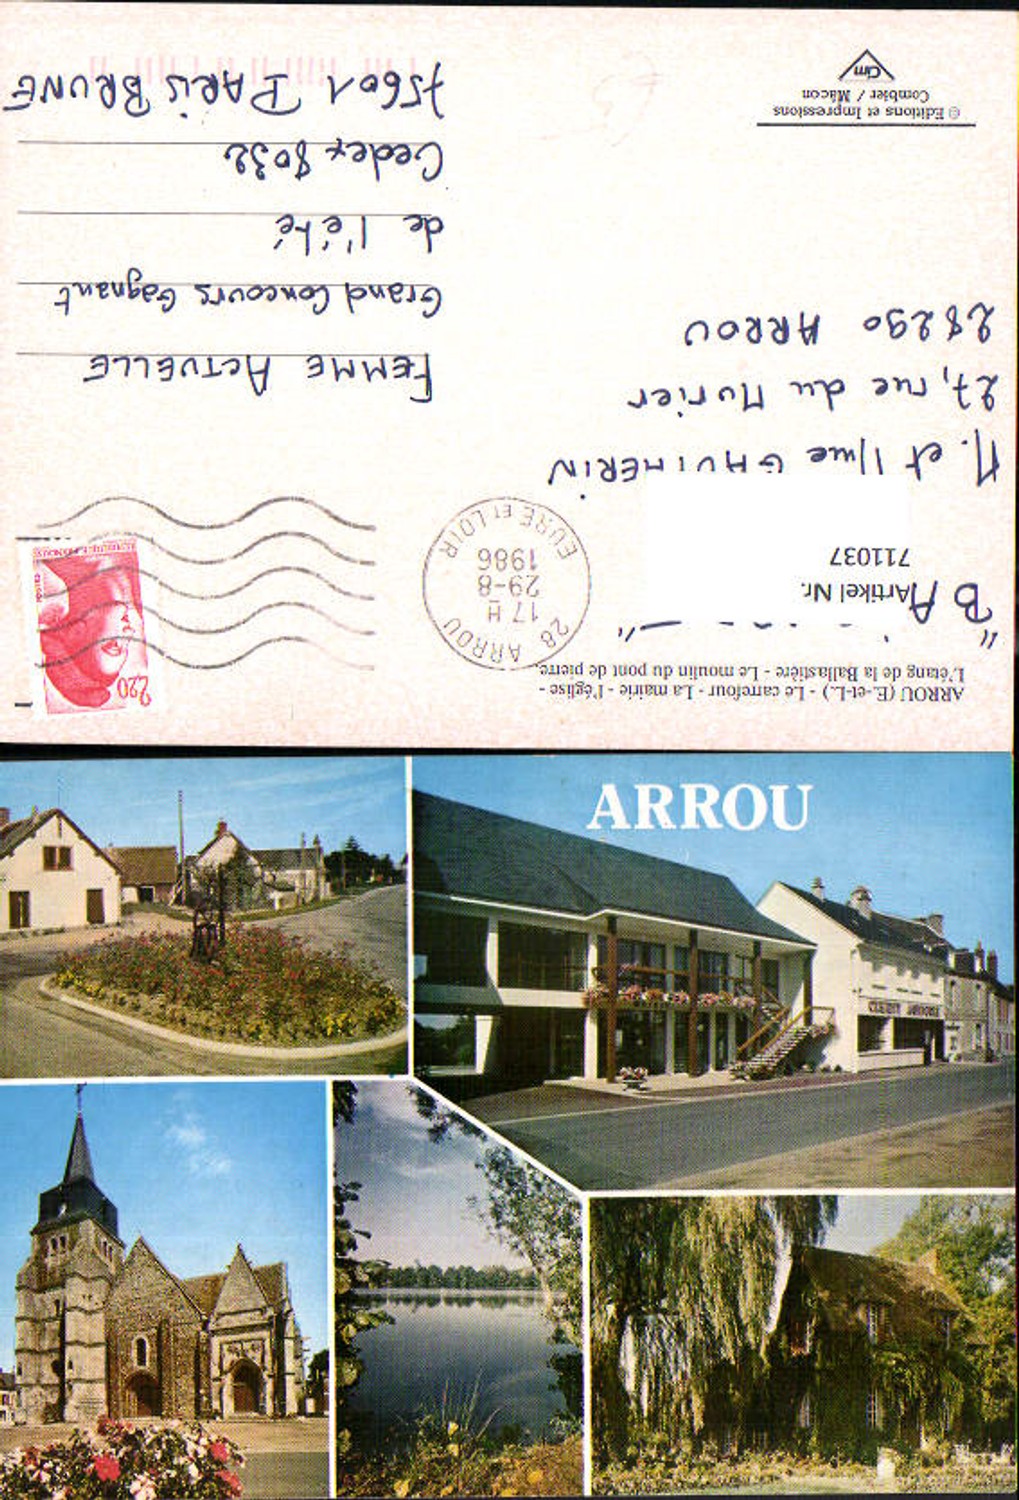 ARROU (E.-et-L.) - Le carrefour - La mairie - l'église -
L'étang de la Ballastière - Le moulin du pont de pierre.
"BA
Artikel Nr.
711037
M. et Mme GHUIMERIN
27, rue du Murier
28290 ARROU
© Editions et Impressions
Combier / Mâcon
Cim
28 ARROU
17 H
29-8
1986
EURE ET LOIR
2,20
POSTES
FEMME ACTUELLE
Grand Concours Gagnant
de l'été
Cedex 8032
75601 PARIS BRUNE
ARROU